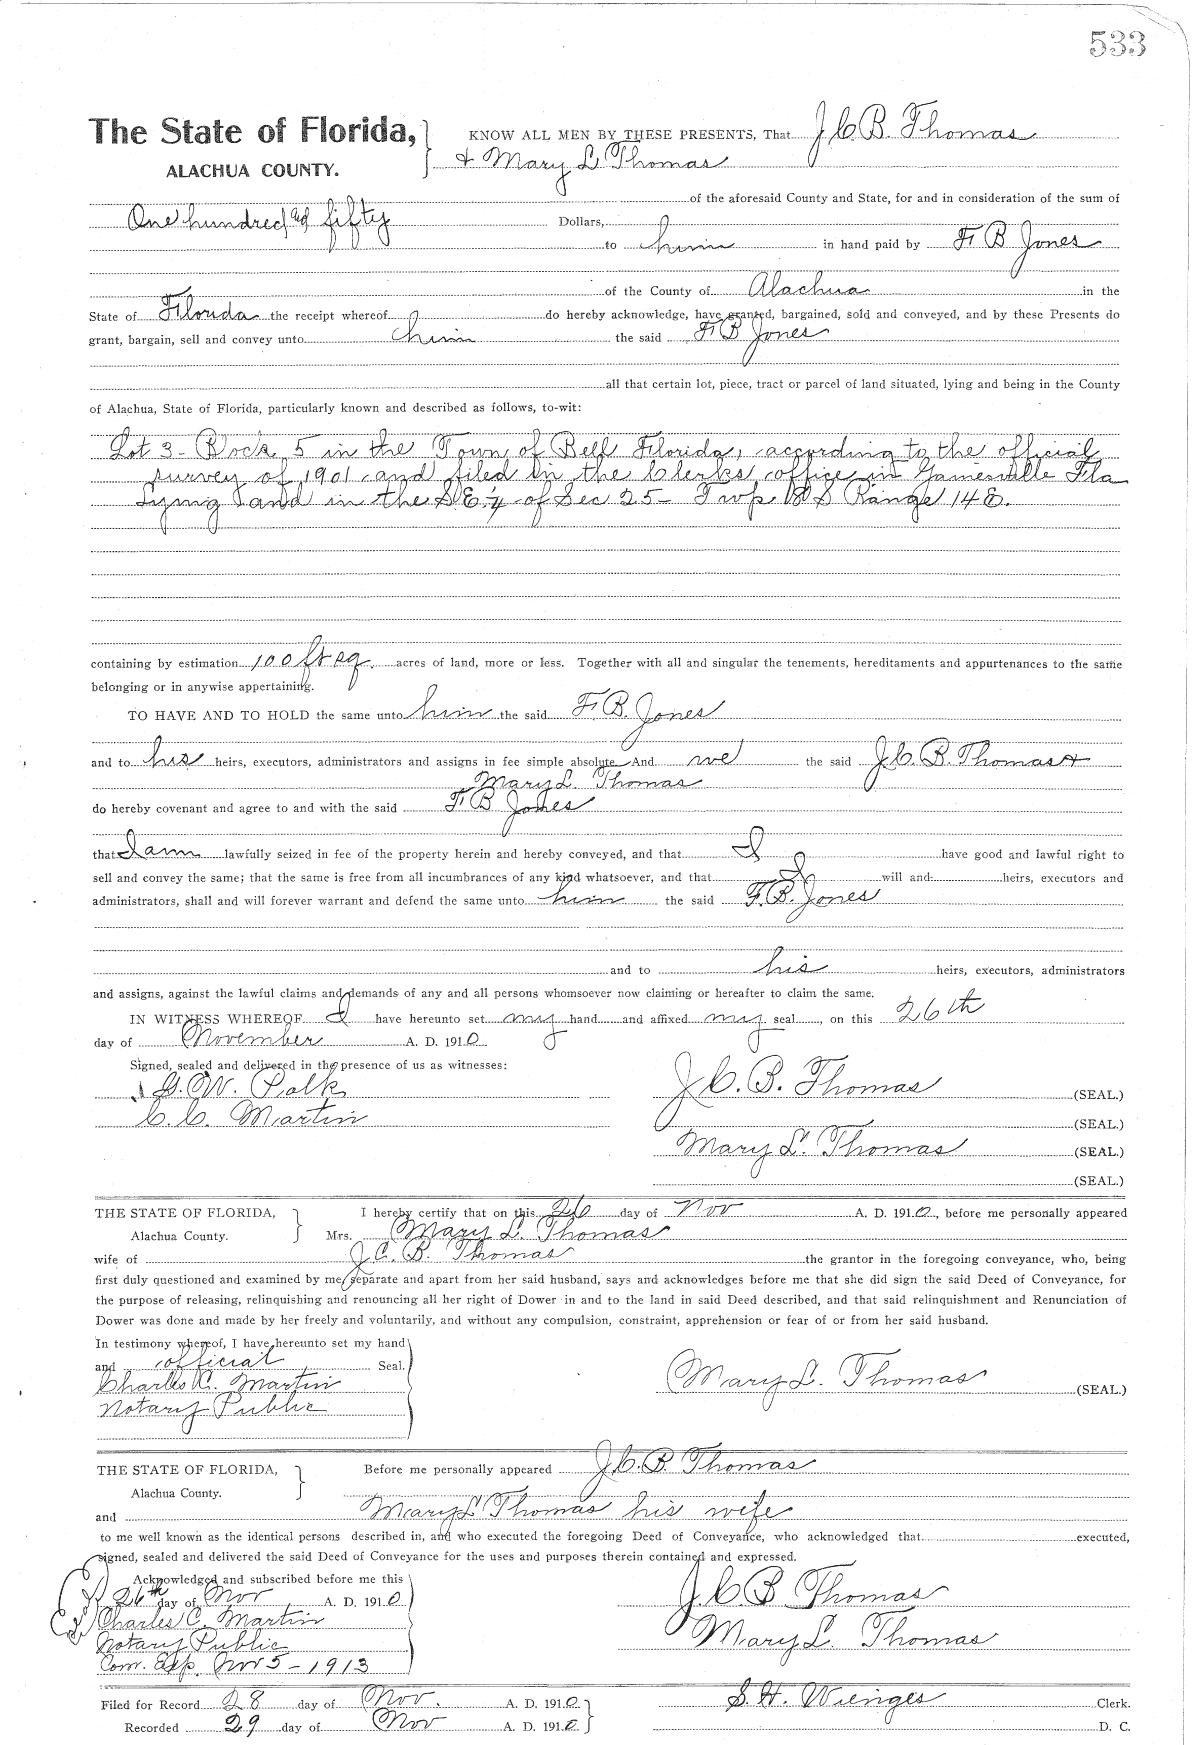 533
The State of Florida, KNOW ALL MEN BY THESE PRESENTS, That J.C.B. Thomas
ALACHUA COUNTY. & Mary L Thomas
of the aforesaid County and State, for and in consideration of the sum of
One hundred and fifty Dollars,
to him in hand paid by F B Jones
of the County of Alachua in the
State of Florida the receipt whereof do hereby acknowledge, have granted, bargained, sold and conveyed, and by these Presents do
grant, bargain, sell and convey unto him the said F B Jones
all that certain lot, piece, tract or parcel of land situated, lying and being in the County
of Alachua, State of Florida, particularly known and described as follows, to-wit:
Lot 3 - Bock 5 in the Town of Bell Florida, according to the official
survey of 1901 and filed in the Clerks office in Gainesville Fla
Lying and in the S E ¼ of Sec 25 - Twp S Range 14 E.
containing by estimation 100 ft sq. acres of land, more or less. Together with all and singular the tenements, hereditaments and appurtenances to the same
belonging or in anywise appertaining.
TO HAVE AND TO HOLD the same unto him the said F. B. Jones
and to his heirs, executors, administrators and assigns in fee simple absolute And we the said J.C. B. Thomas &
Mary L. Thomas
do hereby covenant and agree to and with the said F B Jones
that I am lawfully seized in fee of the property herein and hereby conveyed, and that I have good and lawful right to
sell and convey the same; that the same is free from all incumbrances of any kind whatsoever, and that I will and heirs, executors and
administrators, shall and will forever warrant and defend the same unto him the said F. B. Jones
and to his heirs, executors, administrators
and assigns, against the lawful claims and demands of any and all persons whomsoever now claiming or hereafter to claim the same.
IN WITNESS WHEREOF I have hereunto set my hand and affixed my seal, on this 26th
day of November A. D. 1910
Signed, sealed and delivered in the presence of us as witnesses:
G. W. Polk J. C. B. Thomas (SEAL.)
C. C. Martin (SEAL.)
Mary L. Thomas (SEAL.)
(SEAL.)
THE STATE OF FLORIDA, I hereby certify that on this 26 day of Nov A. D. 1910, before me personally appeared
Alachua County. Mrs. Mary L. Thomas
wife of J C. B. Thomas the grantor in the foregoing conveyance, who, being
first duly questioned and examined by me separate and apart from her said husband, says and acknowledges before me that she did sign the said Deed of Conveyance, for
the purpose of releasing, relinquishing and renouncing all her right of Dower in and to the land in said Deed described, and that said relinquishment and Renunciation of
Dower was done and made by her freely and voluntarily, and without any compulsion, constraint, apprehension or fear of or from her said husband.
In testimony whereof, I have hereunto set my hand
and official Seal.
Charles C. Martin Mary L. Thomas (SEAL.)
Notary Public
THE STATE OF FLORIDA, Before me personally appeared J.C. B. Thomas
Alachua County.
and Mary L Thomas his wife
to me well known as the identical persons described in, and who executed the foregoing Deed of Conveyance, who acknowledged that executed,
signed, sealed and delivered the said Deed of Conveyance for the uses and purposes therein contained and expressed.
Acknowledged and subscribed before me this
26th day of Nov A. D. 1910 J. C B Thomas
Charles C. Martin Mary L. Thomas
Notary Public
Com. Exp. Nov 5 - 1913
Filed for Record 28 day of Nov. A. D. 1910 S. H. Wienges Clerk.
Recorded 29 day of Nov A. D. 1910 D. C.